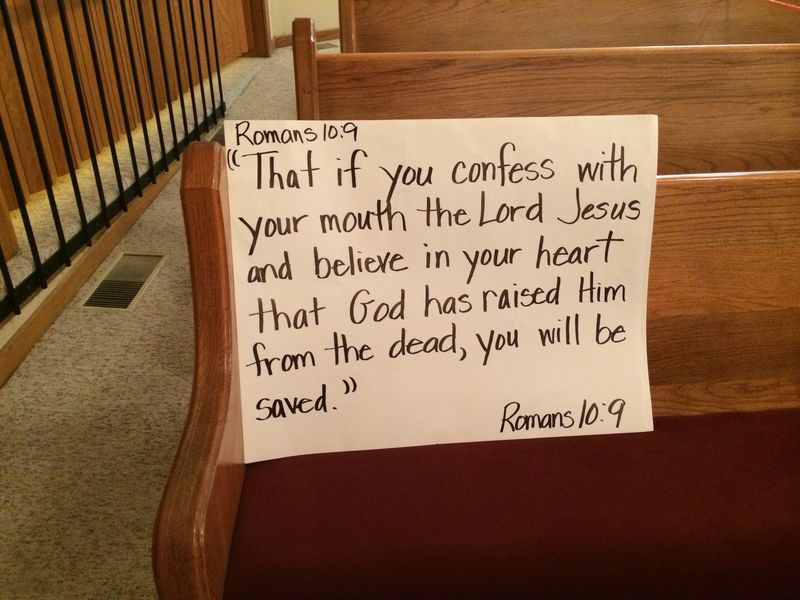 Romans 10:9
"That if you confess with
your mouth the Lord Jesus
and believe in your heart
that God has raised Him
from the dead, you will be
saved."
Romans 10:9